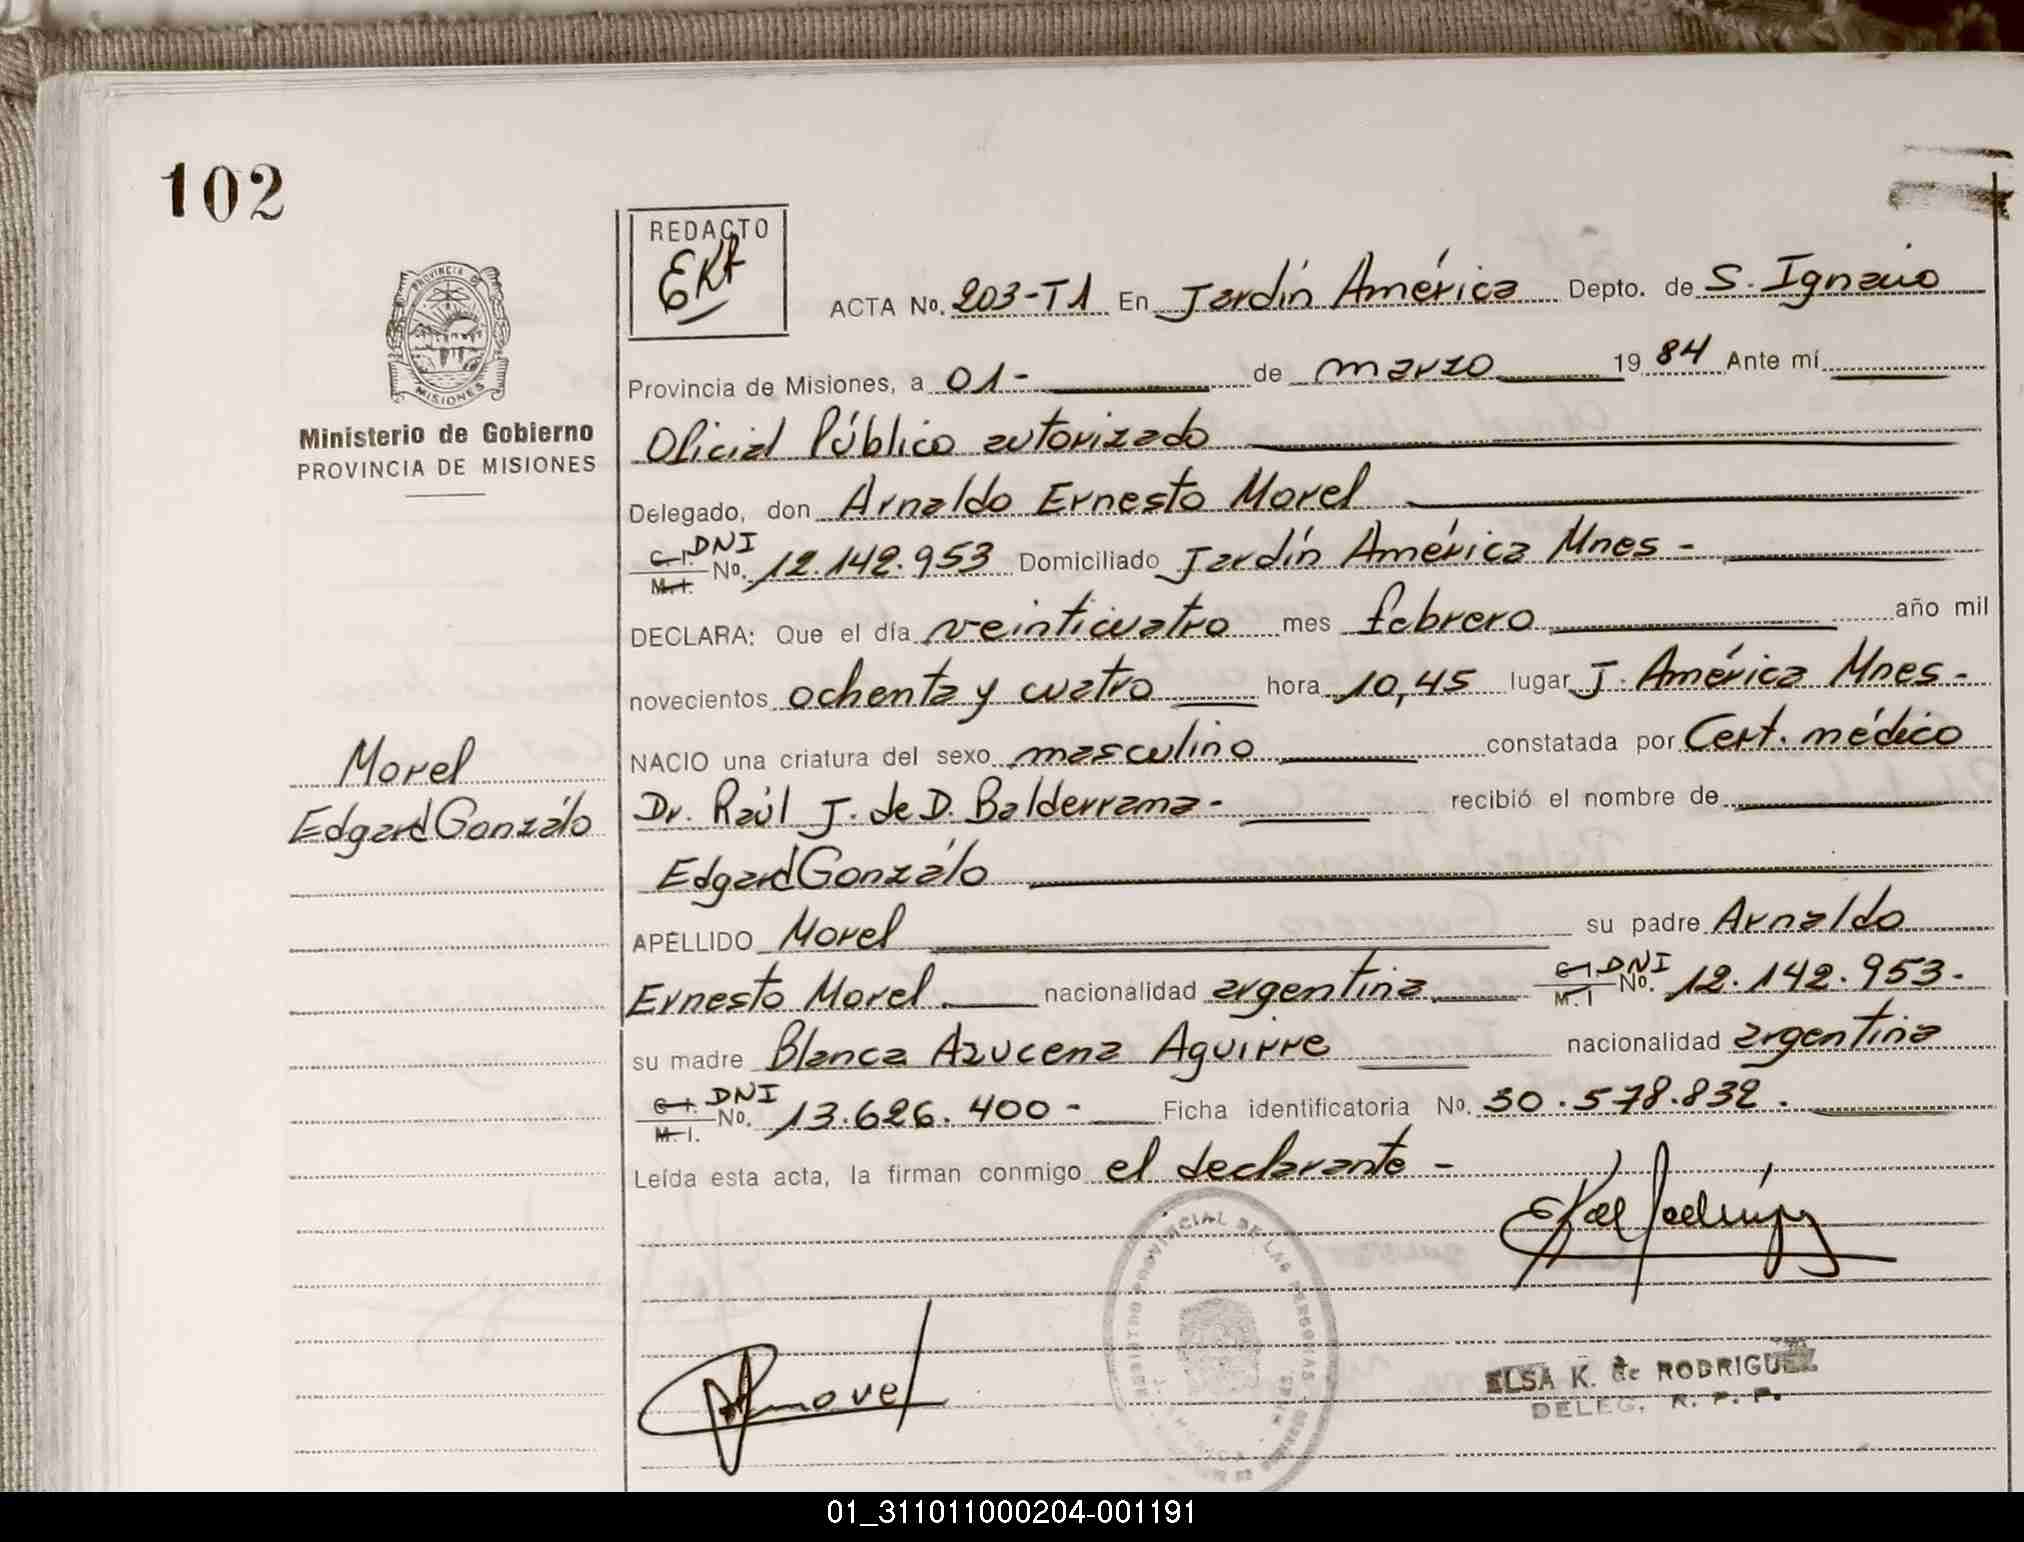 102
REDACTO
EKR
ACTA No. 203-T1 En Jardín América Depto. de S. Ignacio
PROVINCIA DE
MISIONES
Ministerio de Gobierno
PROVINCIA DE MISIONES
Provincia de Misiones, a 01- de marzo 1984 Ante mí
Oficial Público autorizado
Delegado, don Arnaldo Ernesto Morel
C.I. DNI
M.I. No. 12.142.953 Domiciliado Jardín América Mnes -
DECLARA: Que el día veinticuatro mes febrero año mil
novecientos ochenta y cuatro hora 10,45 lugar J. América Mnes -
NACIO una criatura del sexo masculino constatada por Cert. médico
Morel
Edgard Gonzálo
Dr. Raúl J. de D. Balderrama - recibió el nombre de
Edgard Gonzálo
APELLIDO Morel su padre Arnaldo
Ernesto Morel nacionalidad argentina C.I. DNI M.I. No. 12.142.953-
su madre Blanca Azucena Aguirre nacionalidad argentina
C.I. DNI
M.I. No. 13.626.400 - Ficha identificatoria No. 30.578.832.
Leída esta acta, la firman conmigo el declarante -
PROVINCIAL DE LAS PERSONAS
Amorel
ELSA K. de RODRIGUEZ
DELEG. R. P. P.
01_311011000204-001191